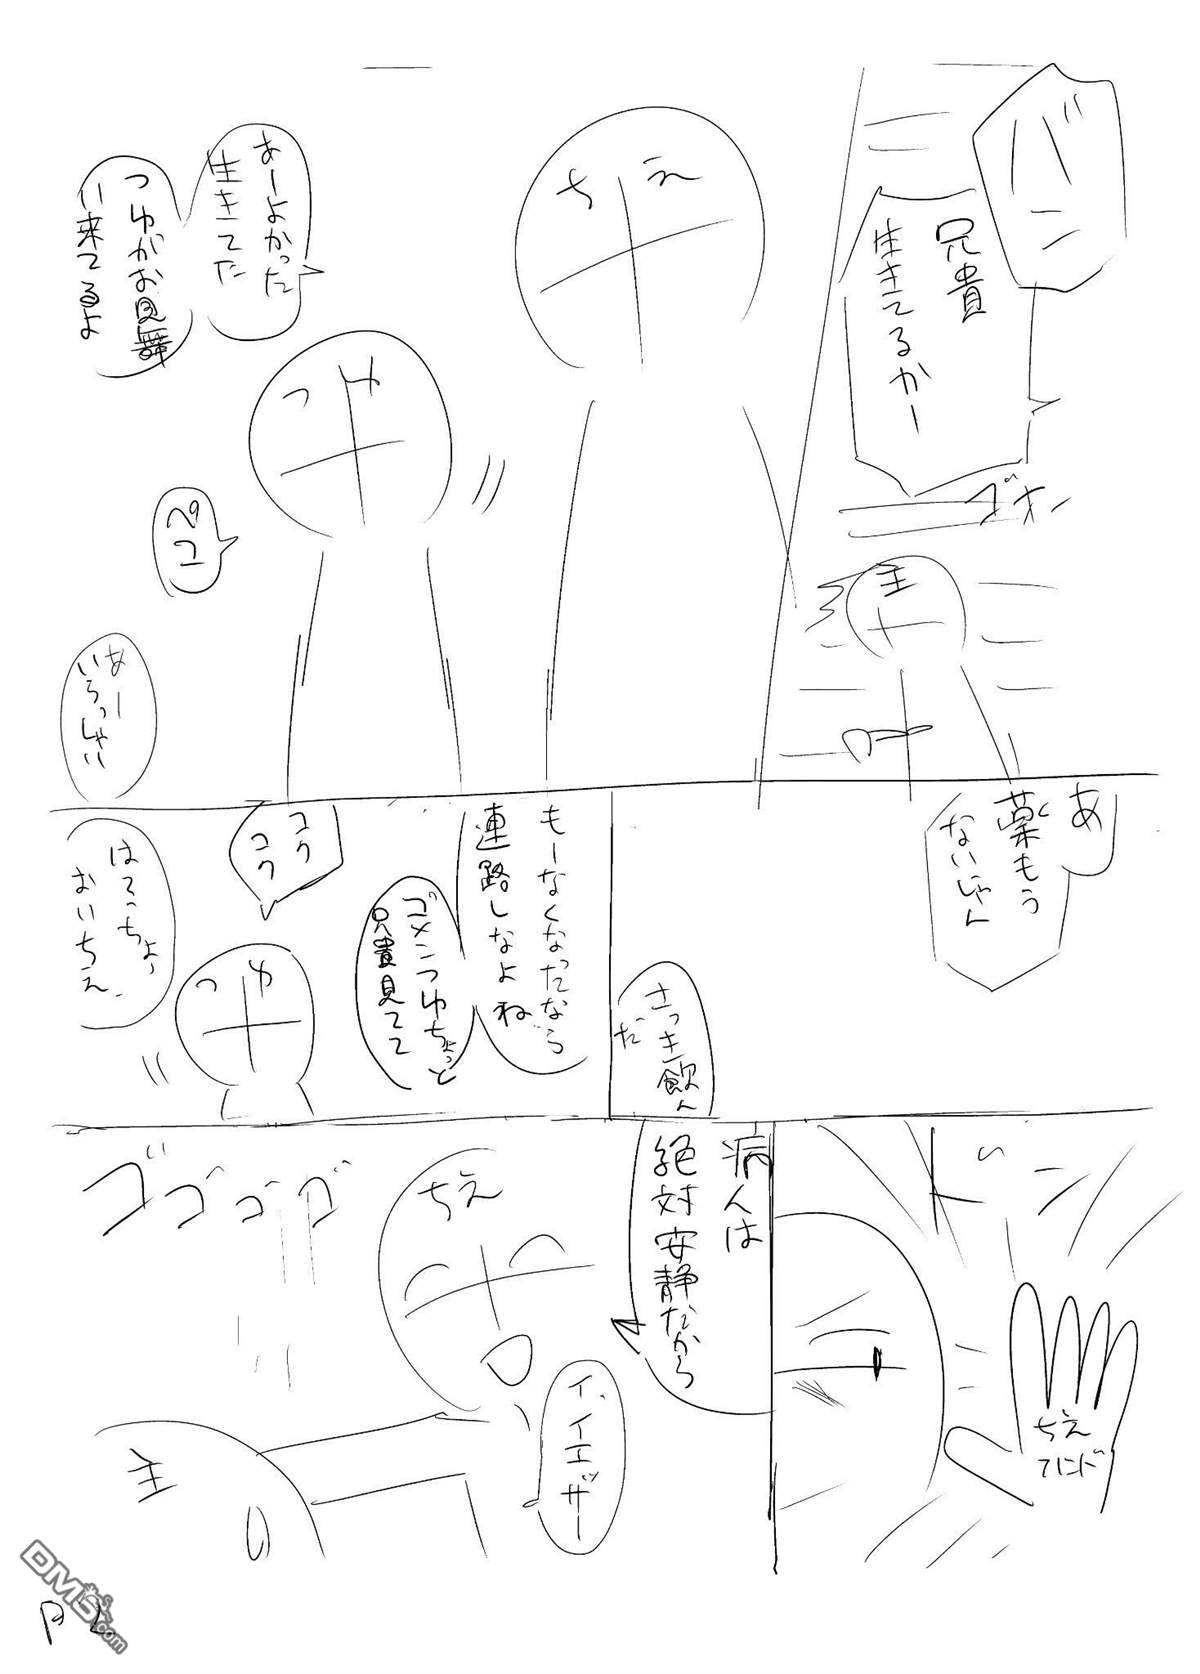 バーン
兄貴
生きてるかー
ゴホン
主
ちえ
あーよかった
生きてた
つゆがお見舞
い来てるよ
つゆ
ペコ
あー
いらっしゃい
あ
薬もう
ないじゃん
さっき飲ん
だ
もーなくなったなら
連絡しなよね
ゴメンつゆちょっと
兄貴見てて
コク
コク
つゆ
はてっちょ
おいちえ
ドン
ちえ
ハンド
病人は
絶対安静だから
ちえ
イ、イエッサー
ゴゴゴゴ
主
DM5.com
P2